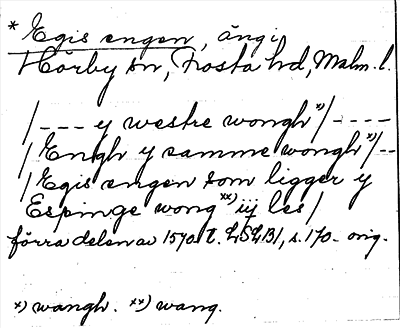 * Egis engen, ängi
Hörby sn, Frosta hd, Malm. l.
/--- y westre wongh x)/----
/Engh y samme wongh x)/--
/Egis engen som ligger y
Espinge wong xx) iij les/
förra delen av 1570 t. LSLB1, s. 170. orig.
x) wangh. xx) wang.